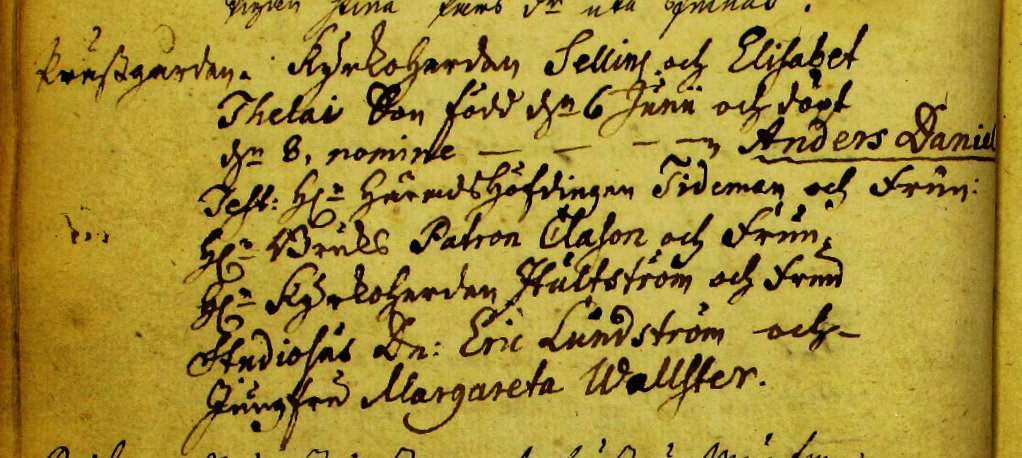 Stina
Prestgården. Kyrkoherdan Sellins och Elisabet
Thelai Son född dn 6 Junii och döpt
dn 8, nomine — — — Anders Daniel
Test: Hr Häredshöfdingen Tideman och Frun:
Hr Bruks Patron Clason och Frun,
Hr Kyrkoherden Hultström och Frun
Studiosus Dn: Eric Lundström och
Jungfru Margareta Wallster.